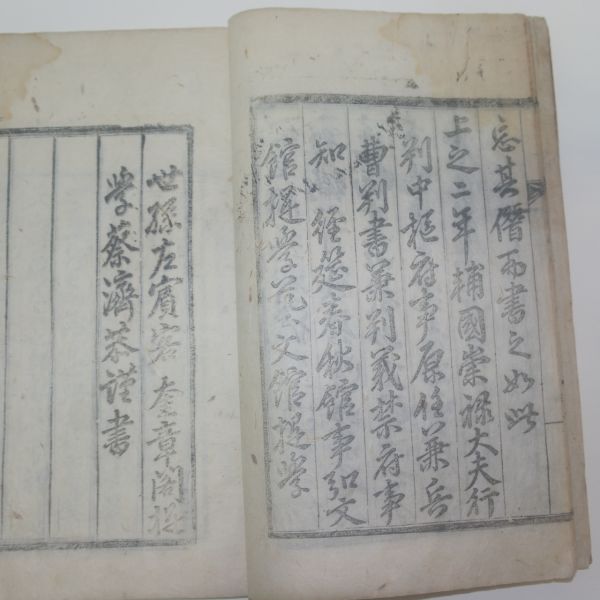 忘其僭而書之如此
上之二年輔國崇祿大夫行
判中樞府事原任兼兵
曹判書兼判義禁府事
知經筵春秋館事弘文
館提學藝文館提學
世孫左賓客奎章閣提
學蔡濟恭謹書